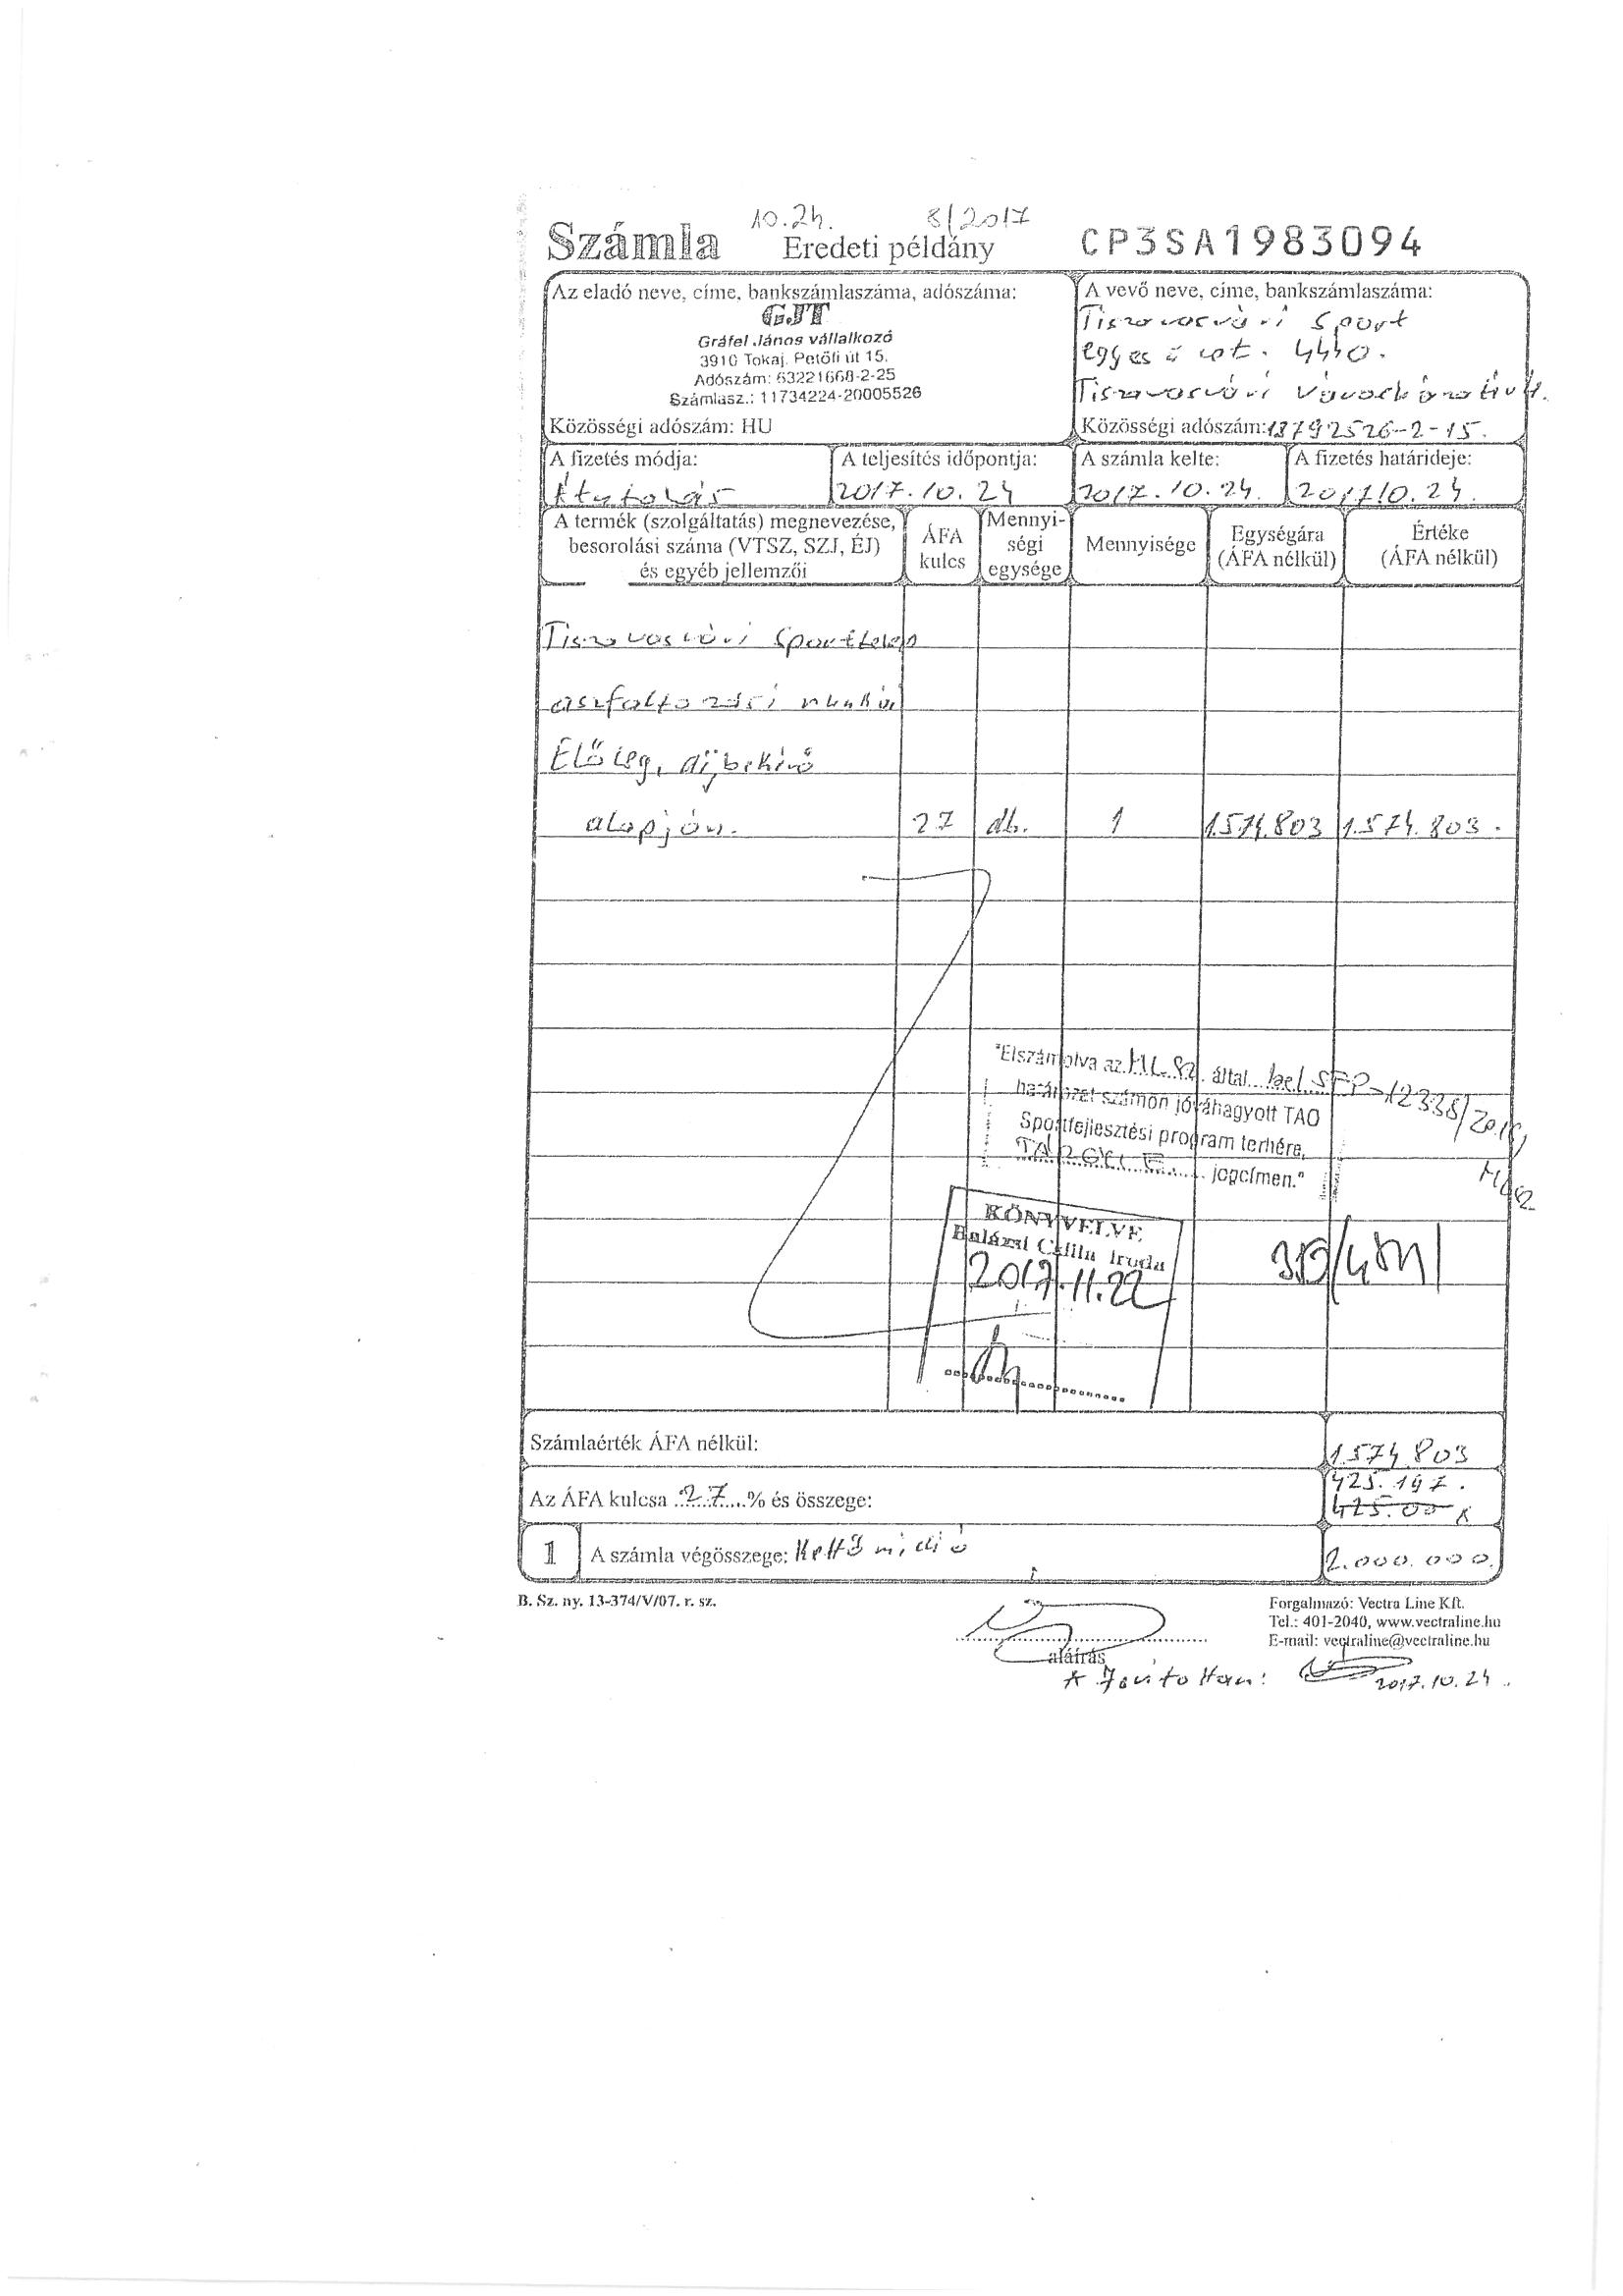 10.24. 8/2017
Számla Eredeti példány CP3SA1983094
Az eladó neve, címe, bankszámlaszáma, adószáma:
GJT
Gráfel János vállalkozó
3910 Tokaj, Petőfi út 15.
Adószám: 63221668-2-25
Számlasz.: 11734224-20005526
Közösségi adószám: HU
A vevő neve, címe, bankszámlaszáma:
Tiszavasvári Sport
egyesület. 4440.
Tiszavasvári Városháza tér 4.
Közösségi adószám: 18792526-2-15.
A fizetés módja: A teljesítés időpontja: A számla kelte: A fizetés határideje:
Átutalás 2017.10.24 2017.10.24. 2017.10.24.
A termék (szolgáltatás) megnevezése,
besorolási száma (VTSZ, SZJ, ÉJ)
és egyéb jellemzői
ÁFA
kulcs
Mennyi-
ségi
egysége
Mennyisége
Egységára
(ÁFA nélkül)
Értéke
(ÁFA nélkül)
Tiszavasvári Sporttelep
aszfaltozási munkái
Előleg, díjbekérő
alapján. 27 db. 1 1.574.803 1.574.803.
"Elszámolva az által
határozat számon jóváhagyott TAO
Sportfejlesztési program terhére,
TÁRGYI E. jogcímen."
KÖNYVELVE
Iroda
2017.11.22
Számlaérték ÁFA nélkül: 1.574.803
425.197.
Az ÁFA kulcsa 27 % és összege: 425.00
1 A számla végösszege: Kettő millió 2.000.000.
B. Sz. ny. 13-374/V/07. r. sz.
Forgalmazó: Vectra Line Kft.
Tel.: 401-2040, www.vectraline.hu
E-mail: vectraline@vectraline.hu
aláírás
* Javítottam: 2017.10.24.